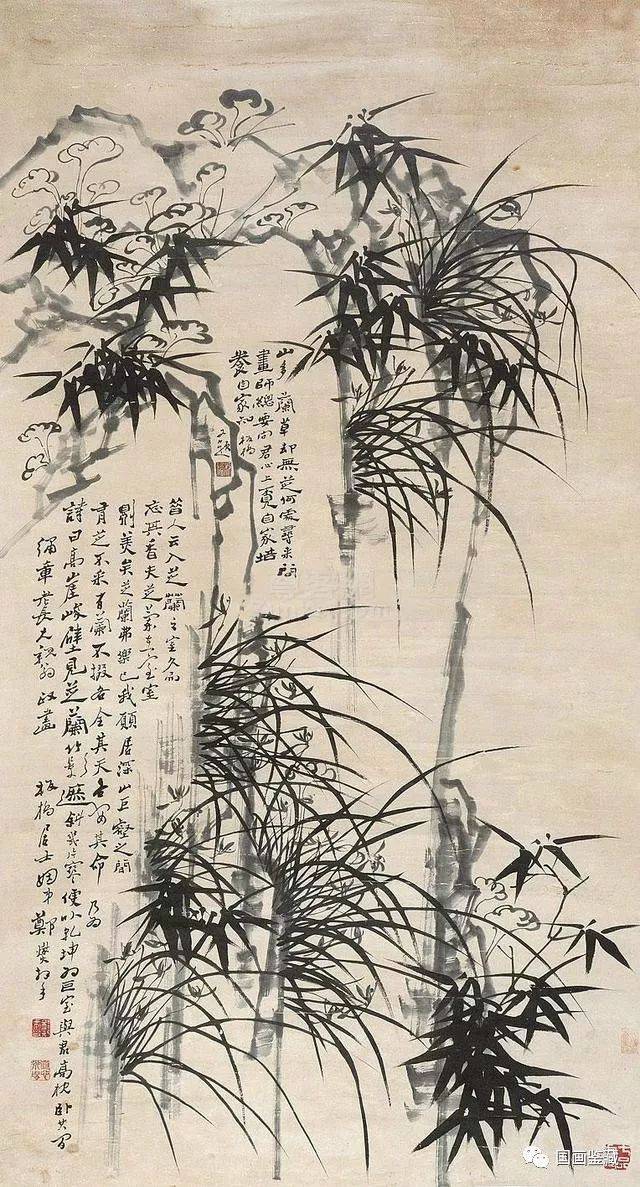 山多蘭草却無芝何處尋來問
畫師總要向君心上覓自家培
養自家知 板橋
又題
昔人云入芝蘭之室久而
忘其香夫芝蘭在室室
則美矣芝蘭弗樂也我願居深山巨壑之間
有芝不采有蘭不掇各全其天各安其命 乃為
詩曰高崖峻壁見芝蘭竹影遮斜幾片寒便以乾坤為巨室與君高枕臥其間
重老長兄親翁政 板橋居士姻弟鄭燮拜手
国画鉴藏